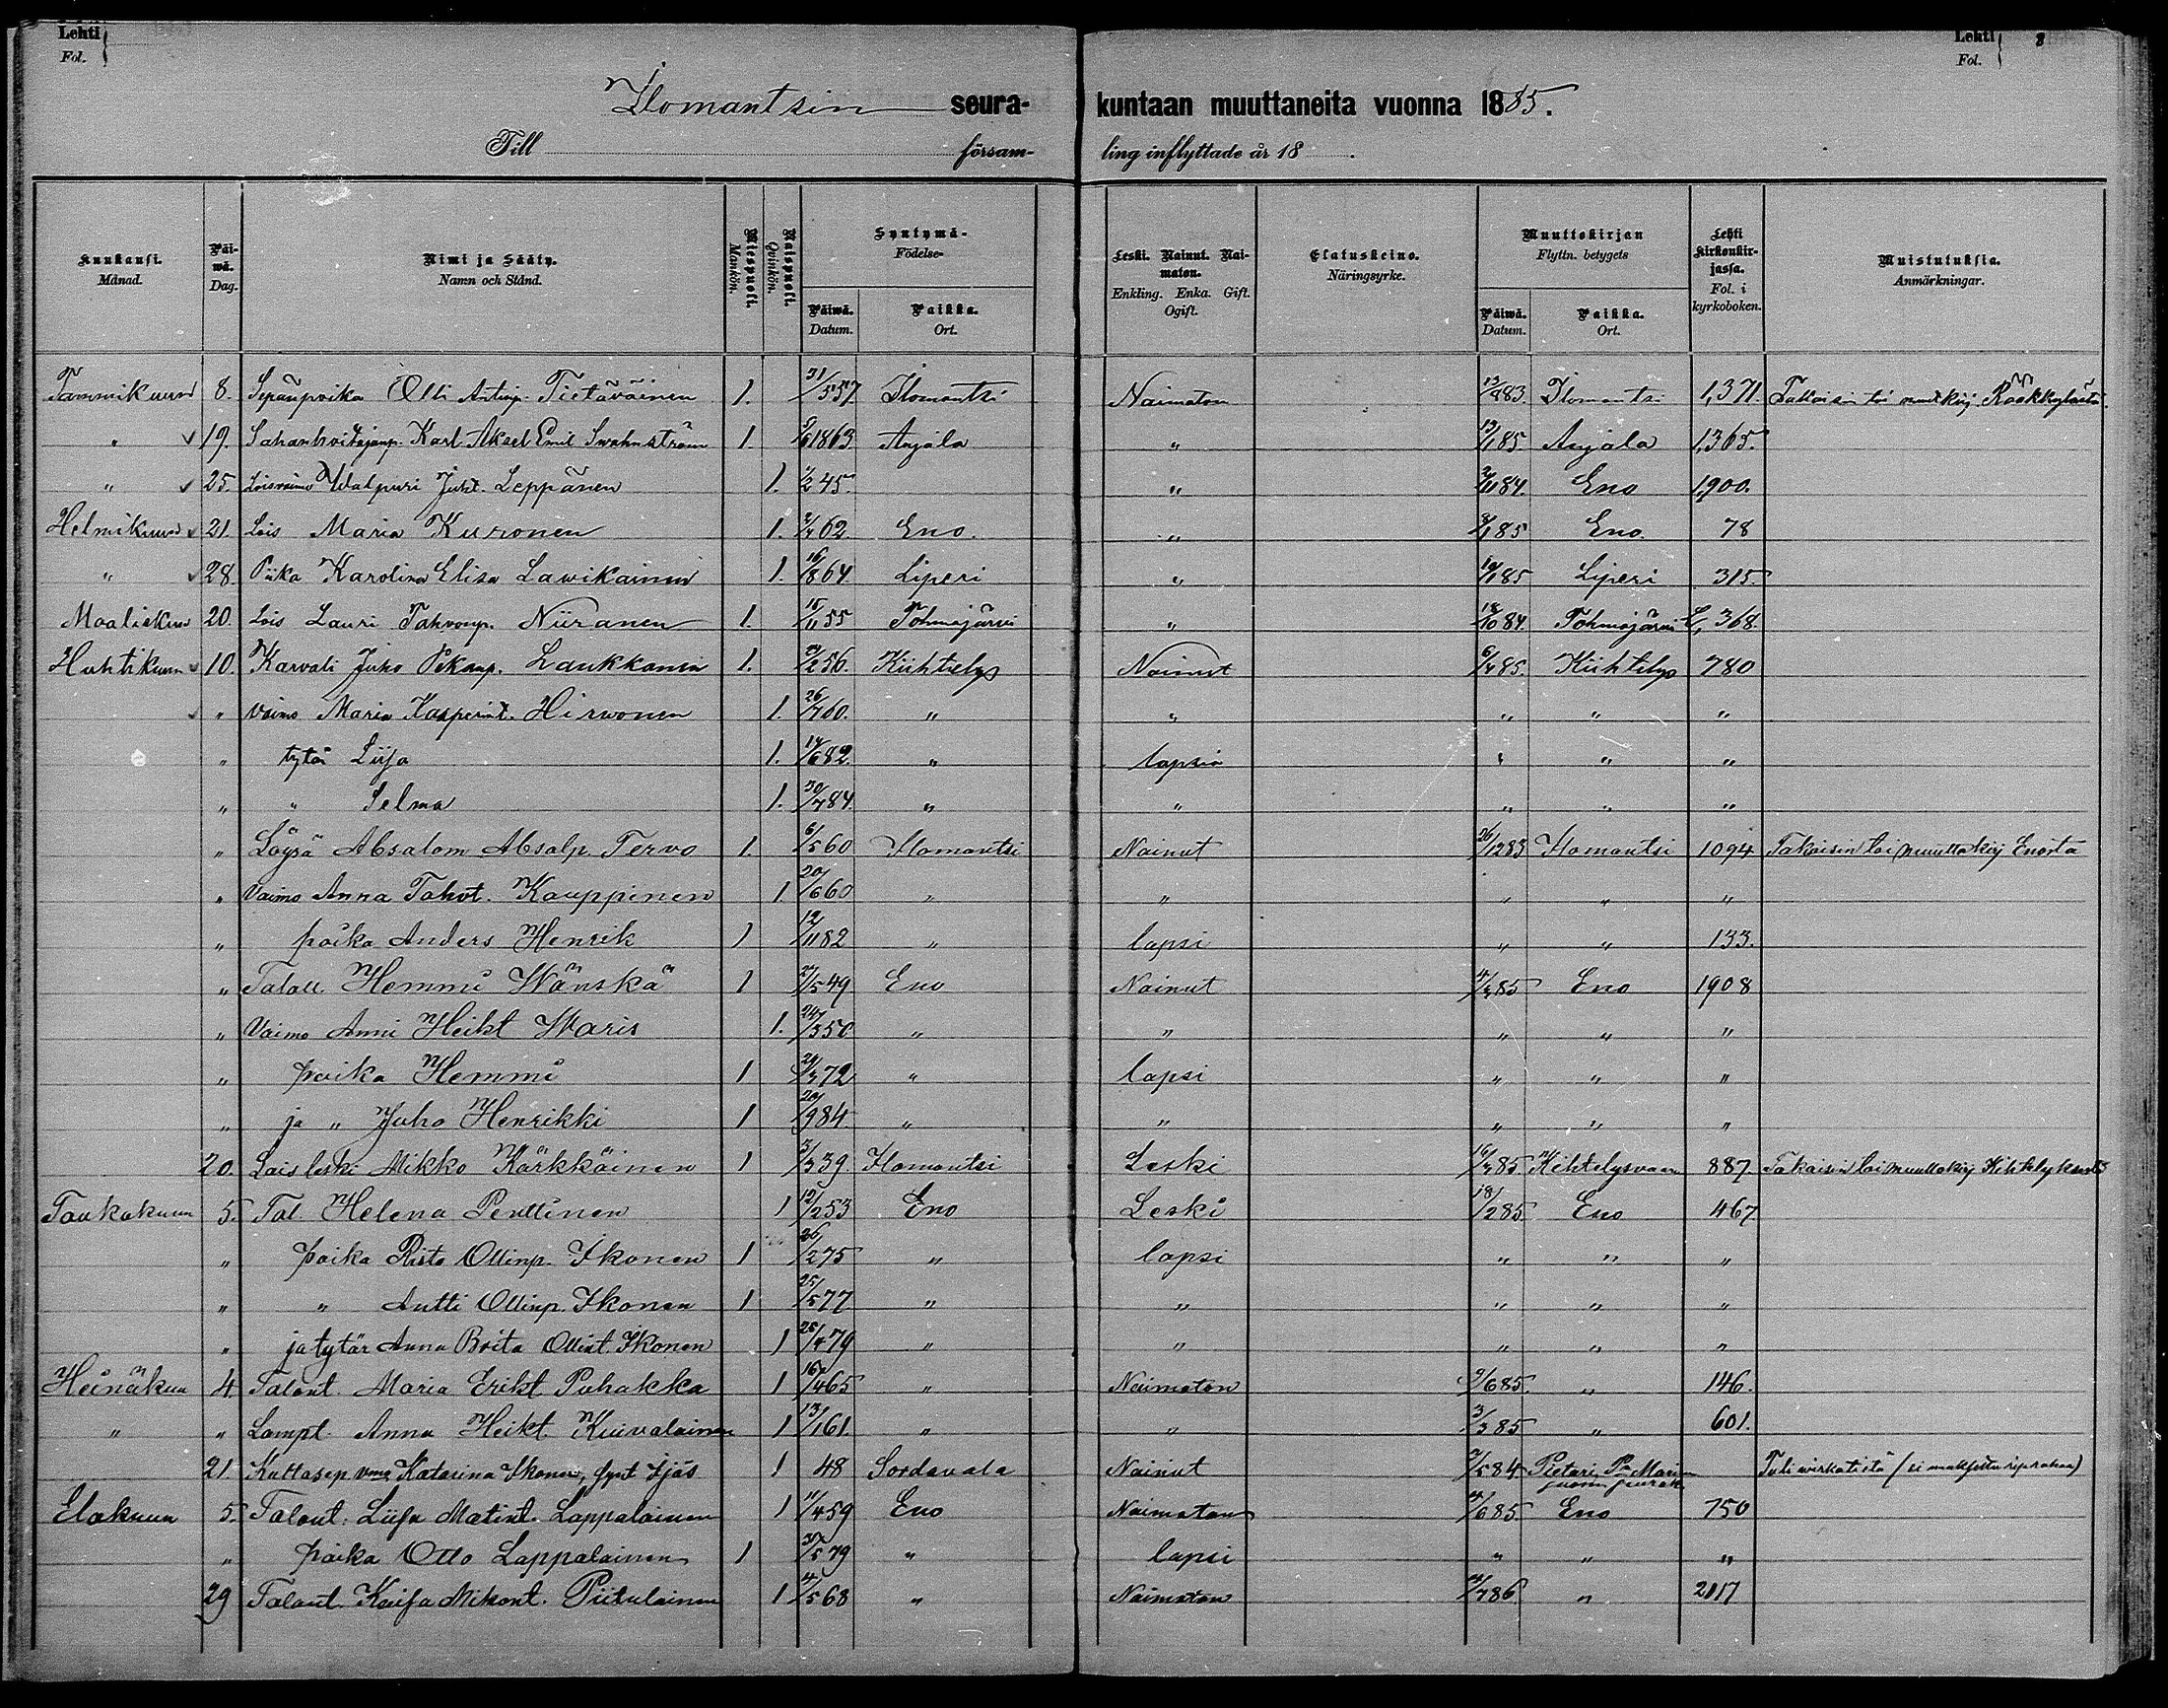 Lehti Fol. Lehti Fol. 8
Ilomantsin seurakuntaan muuttaneita vuonna 1885.
Till församling inflyttade år 18 .
Kuukausi. Månad. Päiwä. Dag. Nimi ja Sääty. Namn och Stånd. Miespuoli. Mankön. Naispuoli. Qvinkön. Syntymä- Födelse- Päiwä. Datum. Paikka. Ort. Leski. Nainut. Naimaton. Enkling. Enka. Gift. Ogift. Elatuskeino. Näringsyrke. Muuttokirjan Flyttn. betygets Päiwä. Datum. Paikka. Ort. Lehti kirkonkirjassa. Fol. i kyrkoboken. Muistutuksia. Anmärkningar.
Tammikuun 8. Sepänpoika Olli Antinp. Tietäväinen 1. 31/5 57 Ilomantsi Naimaton 13/ 83. Ilomantsi 1,371. Takaisin toi muutkirj. Rääkkylästä
" 19. Sahanhoitajanp. Karl Aksel Emil Swahnström 1. 5/6 1863 Anjala " 13/1 85. Anjala 1,365.
" 25. Loisvaimo Walpuri Juht. Leppänen 1. 1/2 45. " 2/11 84. Eno 1,900.
Helmikuun 21. Lois Maria Kuronen 1. 2/4 62. Eno. " 8/1 85 Eno. 78
" 28. Piika Karolina Elisa Lawikainen 1. 16/8 64. Liperi " 19/1 85 Liperi 315.
Maaliskuun 20. Lois Lauri Tahvonp. Niiranen 1. 15/11 55 Tohmajärvi " 18/10 84. Tohmajärvi L, 368.
Huhtikuun 10. Karvali Juho Pekanp. Laukkanen 1. /2 56. Kiihtelys Nainut 6/4 85. Kiihtelys 780
" vaimo Maria Kasperint. Hirwonen 1. 26/7 60. " " " " "
" tytär Liisa 1. 14/6 82. " lapsia " " "
" " Selma 1. 30/7 84. " " " " "
" Löysä Absalom Absalp. Tervo 1. 6/5 60 Ilomantsi Nainut 26/12 83 Ilomantsi 1094 Takaisin toi muuttokirj Enosta
" Vaimo Anna Tahvt. Kauppinen 1 20/6 60 " " " " "
" poika Anders Henrik 1 12/11 82 " lapsi " " 133.
" Taloll. Hemmi Wänskä 1 27/5 49 Eno Nainut 4/3 85 Eno 1908
" Vaimo Anni Heikt Waris 1. 24/3 50 " " " " "
" poika Hemmi 1 24/3 72 " lapsi " " "
" ja " Juho Henrikki 1 20/9 84 " " " " "
20. Lois leski Mikko Kärkkäinen 1 3/3 39. Ilomantsi Leski 16/3 85 Kihtelysvaara 887 Takaisin toi muuttokirj
Toukokuun 5. Tal. Helena Penttinen 1 12/2 53 Eno Leski 18/2 85 Eno 467
" poika Risto Ollinp. Ikonen 1 26/2 75 " lapsi " " "
" " Antti Ollinp. Ikonen 1 25/5 77 " " " " "
" ja tytär Anna Brita Ollint. Ikonen 1 28/4 79 " " " " "
Heinäkuu 4. Talont. Maria Erikt Puhakka 1 16/4 65 " Naimaton 9/6 85. " 146.
" " Lampt. Anna Heikt. Kuivalainen 1 13/1 61. " " 3/3 85 " 601.
21. Kultasep vmo Katarina Ikonen, synt Ijäs 1 48 Sordavala Nainut 7/5 84 Pietari, P:a Marian Tuli wirkatietä
Elokuun 5. Talont. Liisa Matint. Lappalainen 1 11/4 59 Eno Naimaton /6 85 Eno 750
" poika Otto Lappalainen 1 /5 79 " lapsi " " "
29 Talont. Kaisa Mikont. Piitulainen 1 4/5 68 " Naimaton /7 86 " 2117